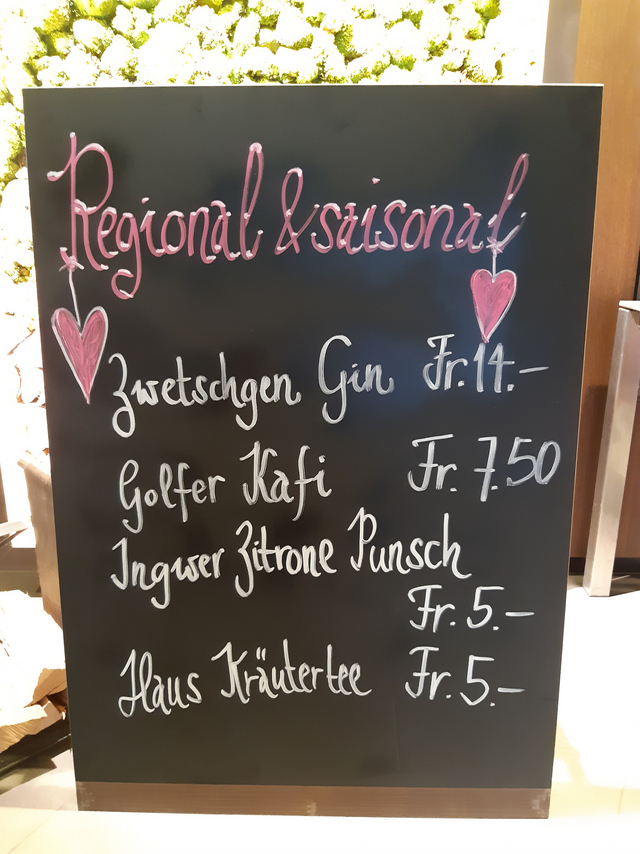 Regional & saisonal
Zwetschgen Gin Fr. 14.-
Golfer Kafi Fr. 7.50
Ingwer Zitrone Punsch
Fr. 5.-
Haus Kräutertee Fr. 5.-